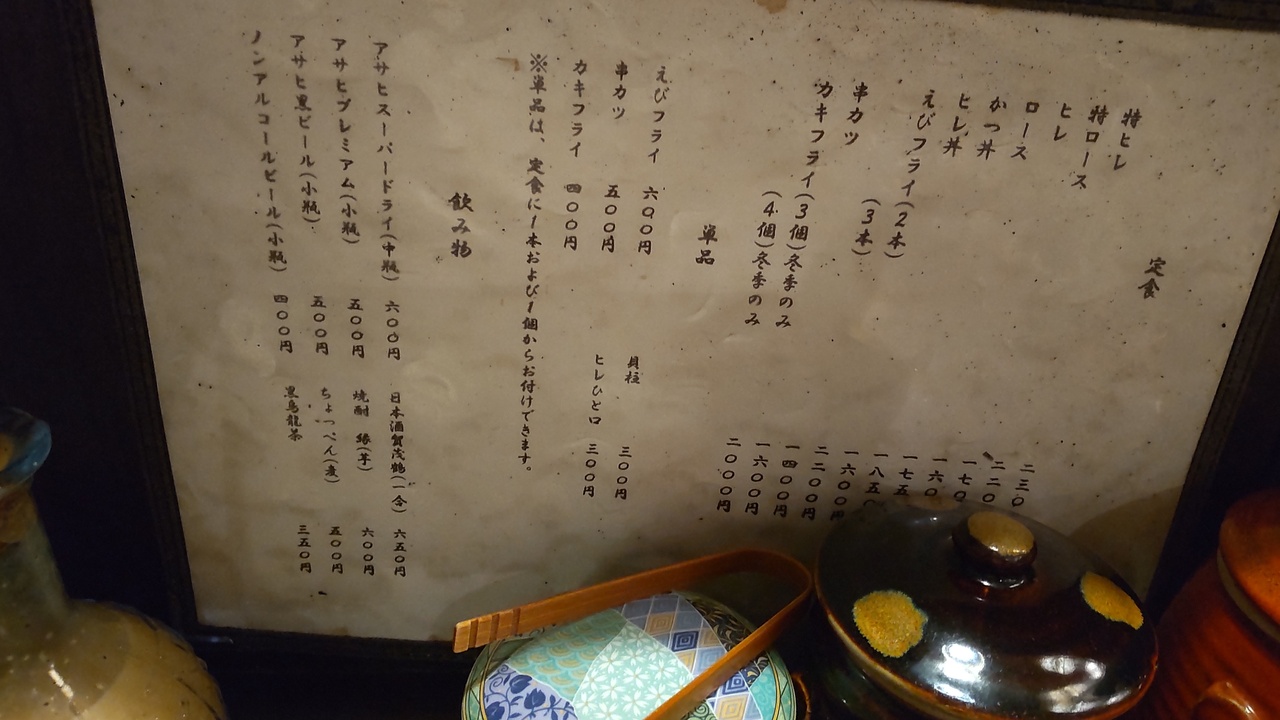 定食
特ヒレ 二三〇
特ロース 二二〇
ヒレ 一七〇
ロース 一六〇
かつ丼 一七五
ヒレ丼 一八五
えびフライ(2本) 一六〇〇円
(3本) 二二〇〇円
串カツ 一四〇〇円
カキフライ(3個)冬季のみ 一六〇〇円
(4個)冬季のみ 二〇〇〇円
単品
えびフライ 六〇〇円
貝柱 三〇〇円
串カツ 五〇〇円
ヒレひと口 三〇〇円
カキフライ 四〇〇円
※単品は、定食に1本および1個からお付けできます。
飲み物
アサヒスーパードライ(中瓶) 六〇〇円
日本酒賀茂鶴(一合) 六五〇円
アサヒプレミアム(小瓶) 五〇〇円
焼酎 縁(芋) 六〇〇円
アサヒ黒ビール(小瓶) 五〇〇円
ちょっぺん(麦) 五〇〇円
ノンアルコールビール(小瓶) 四〇〇円
黒烏龍茶 三五〇円